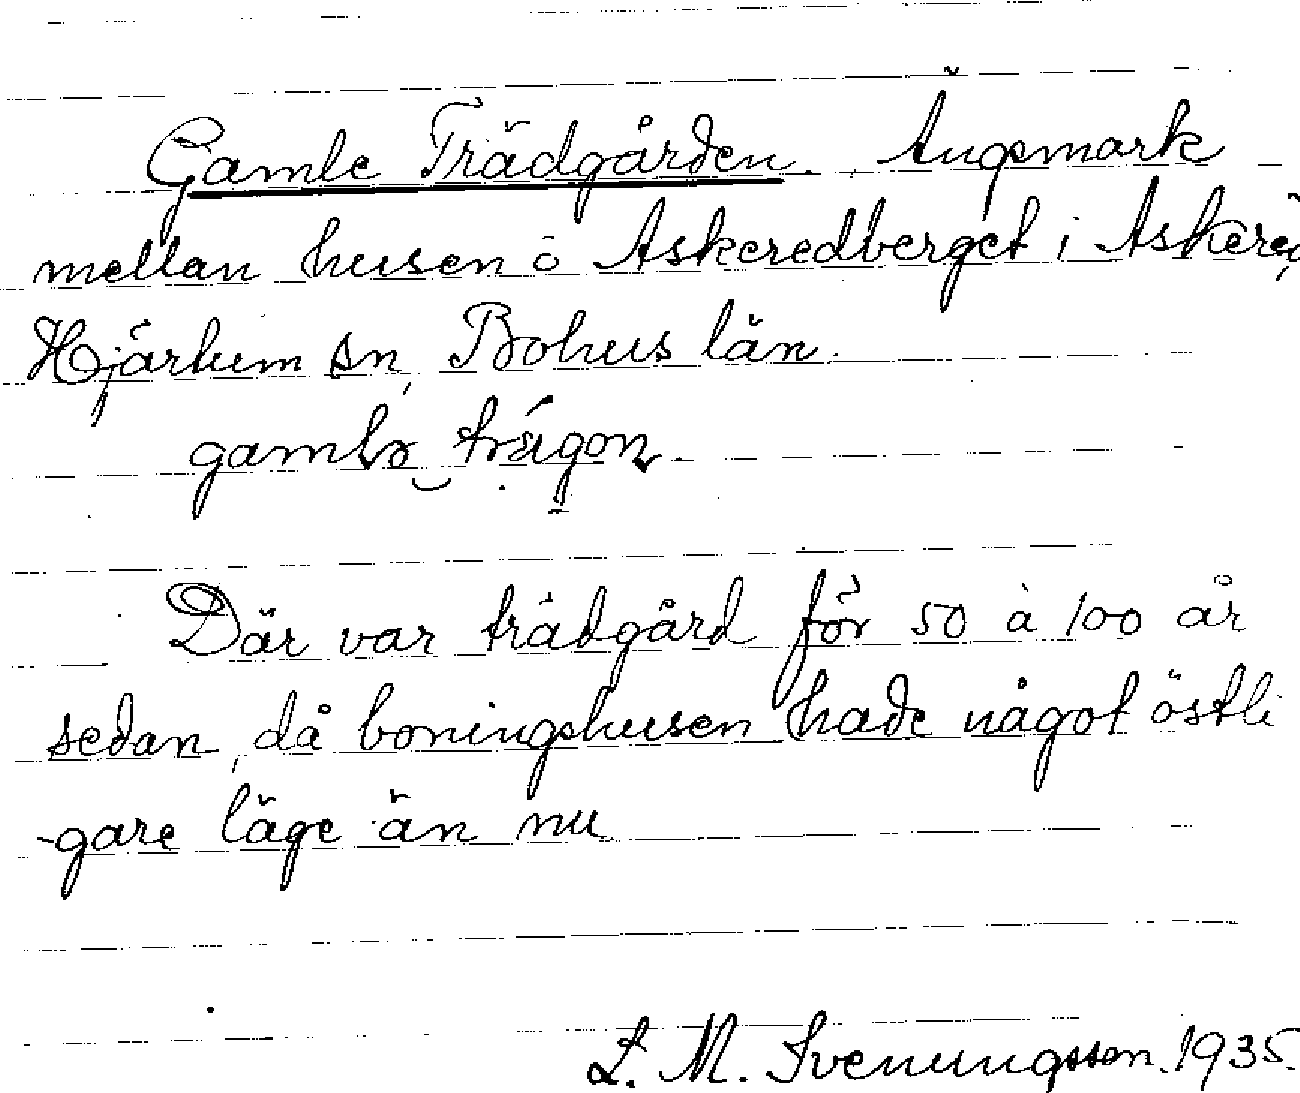 Gamle Trädgården. Ängsmark
mellan husen o Askeredberget i Askered,
Hjärtum sn, Bohus län.
gamlə trágon
Där var trädgård för 50 à 100 år
sedan, då boningshusen hade något östli
-gare läge än nu
L. M. Svenungsson. 1935.